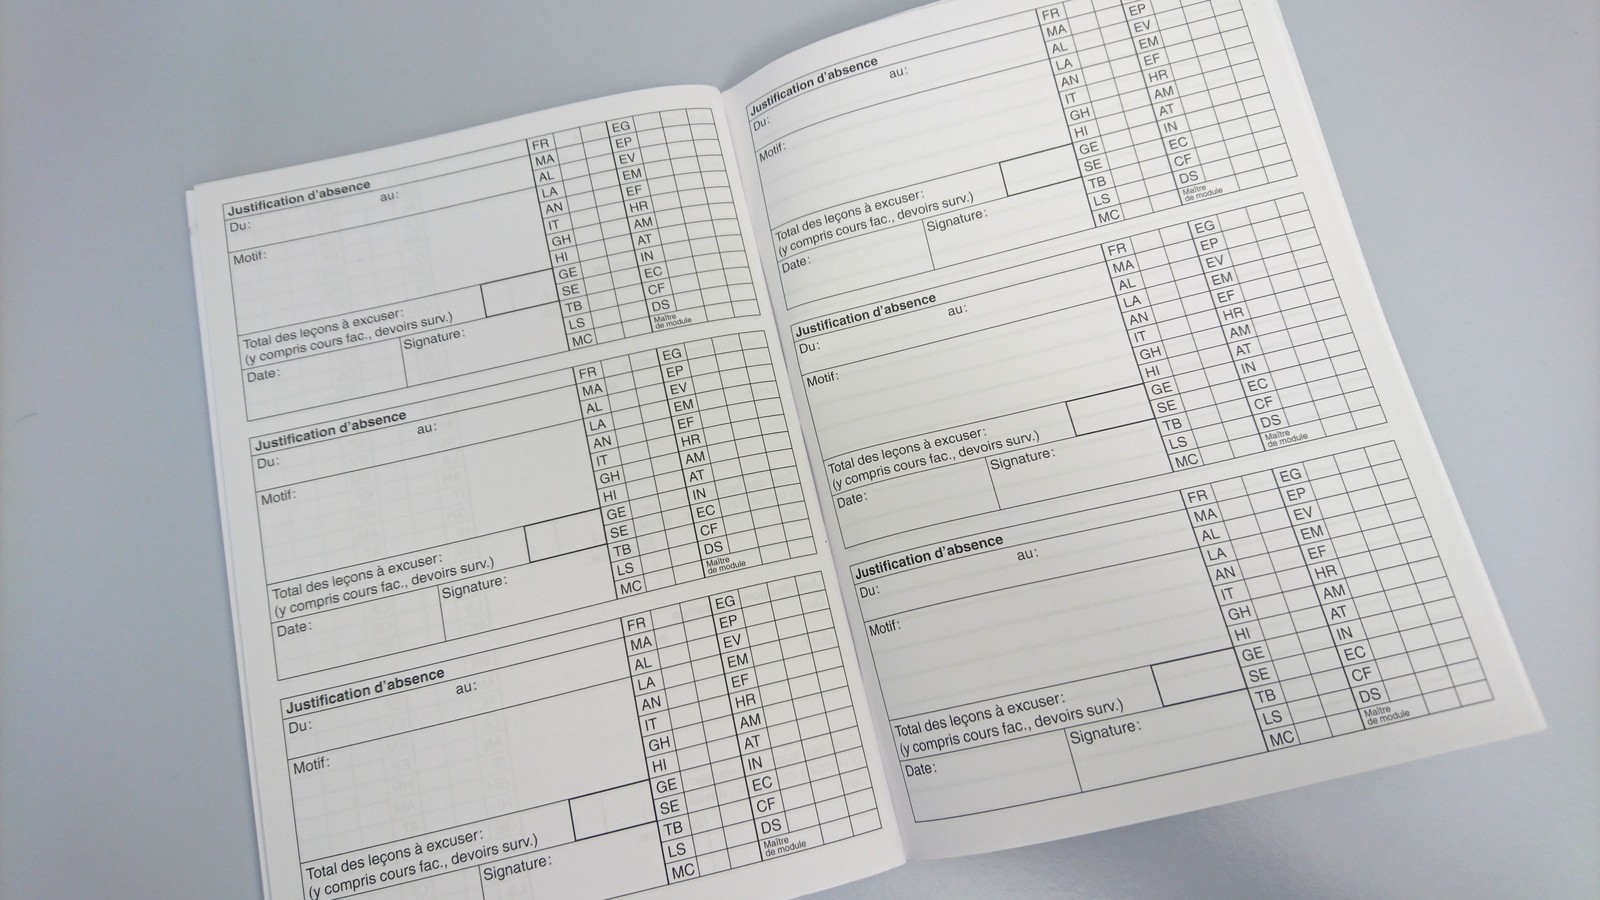 Justification d'absence
Du: au:
Motif:
Total des leçons à excuser:
(y compris cours fac., devoirs surv.)
Date: Signature:
FR EG
MA EP
AL EV
LA EM
AN EF
IT HR
GH AM
HI AT
GE IN
SE EC
TB CF
LS DS
MC Maître de module
Justification d'absence
Du: au:
Motif:
Total des leçons à excuser:
(y compris cours fac., devoirs surv.)
Date: Signature:
FR EG
MA EP
AL EV
LA EM
AN EF
IT HR
GH AM
HI AT
GE IN
SE EC
TB CF
LS DS
MC Maître de module
Justification d'absence
Du: au:
Motif:
Total des leçons à excuser:
(y compris cours fac., devoirs surv.)
Signature:
FR EG
MA EP
AL EV
LA EM
AN EF
IT HR
GH AM
HI AT
GE IN
SE EC
TB CF
LS DS
MC Maître de module
Justification d'absence
Du: au:
Motif:
Total des leçons à excuser:
(y compris cours fac., devoirs surv.)
Date: Signature:
FR
MA EP
AL EV
LA EM
AN EF
IT HR
GH AM
HI AT
GE IN
SE EC
TB CF
LS DS
MC Maître de module
Justification d'absence
Du: au:
Motif:
Total des leçons à excuser:
(y compris cours fac., devoirs surv.)
Date: Signature:
FR EG
MA EP
AL EV
LA EM
AN EF
IT HR
GH AM
HI AT
GE IN
SE EC
TB CF
LS DS
MC Maître de module
Justification d'absence
Du: au:
Motif:
Total des leçons à excuser:
(y compris cours fac., devoirs surv.)
Date: Signature:
FR EG
MA EP
AL EV
LA EM
AN EF
IT HR
GH AM
HI AT
GE IN
SE EC
TB CF
LS DS
MC Maître de module